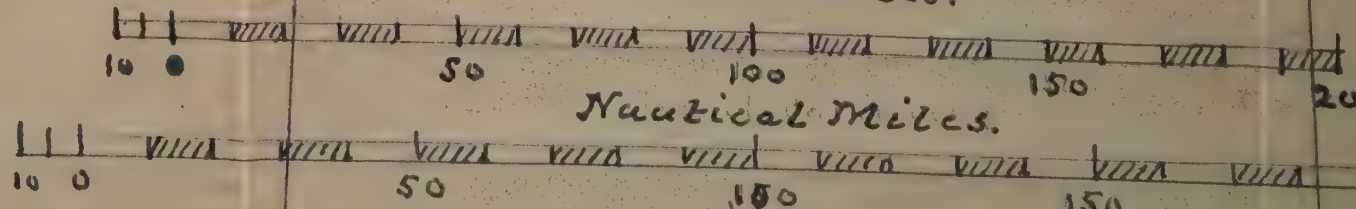 10 0 50 100 150 20
Nautical Miles.
10 0 50 100 150